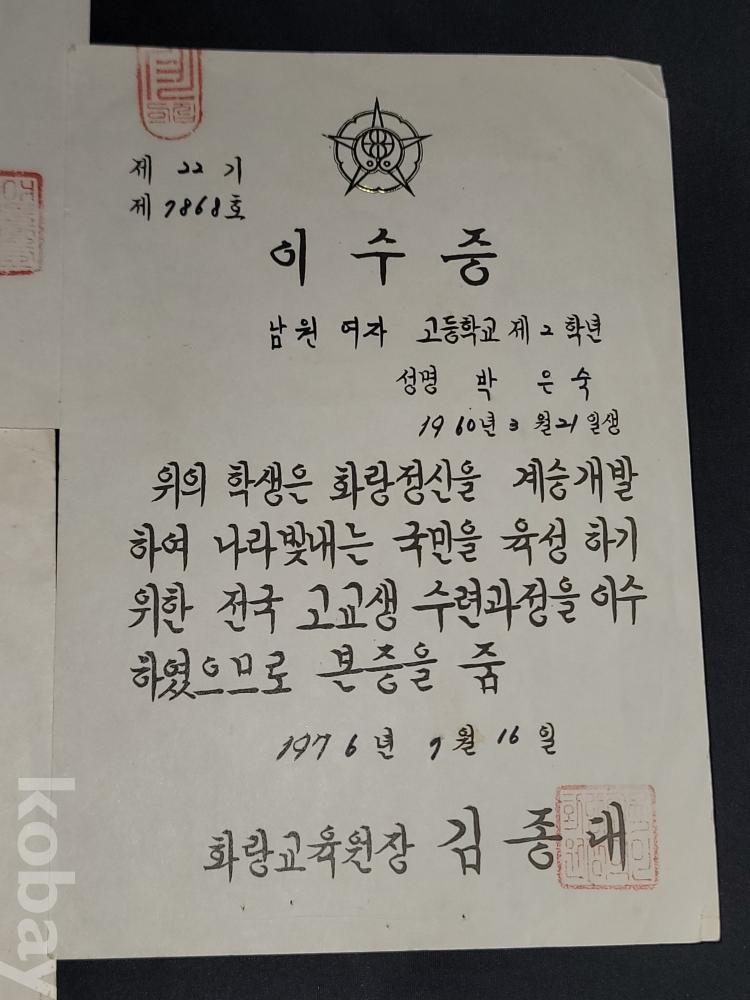 제 22 기
제 7868호
이 수 증
남원 여자 고등학교 제 2 학년
성명 박 은 숙
1960년 3 월 21 일생
위의 학생은 화랑정신을 계승개발
하여 나라빛내는 국민을 육성 하기
위한 전국 고교생 수련과정을 이수
하였으므로 본증을 줌
1976년 7월 16일
화랑교육원장 김 종 대
kobay